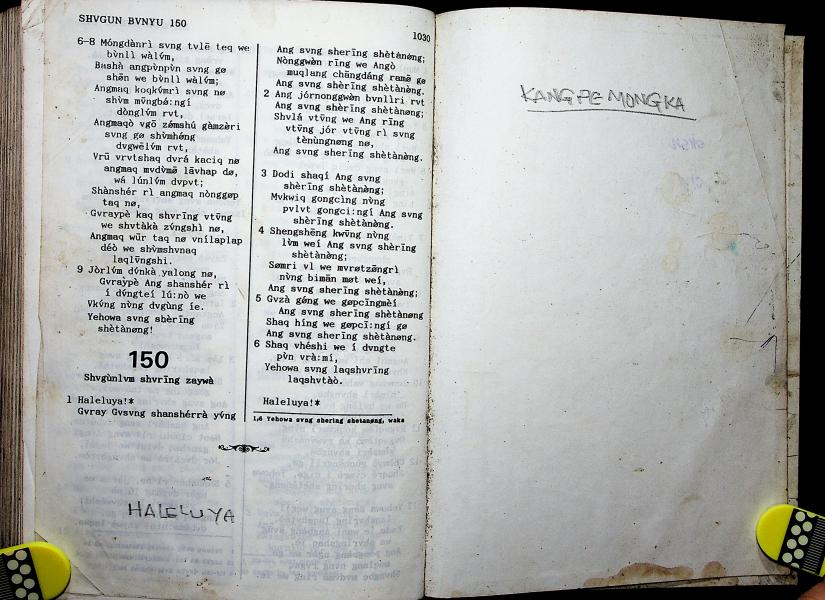 SHVGUN BVNYU 150
1030
6-8 Móngdànrì svng tvlē teq we
bv̀nll wàlv́m,
Bashà angpv̀npv̀n svng gø
shēn we bv̀nll wàlv́m;
Angmaq koqkv́mrì svng nø
shv̀m mv̄ngbø:ngí
dònglv́m rvt,
Angmaqò vgō zǿmshú gàmzèrì
svng gø shv̀mhǿng
dvgwēlv́m rvt,
Vrū vrvtshaq dvrá kaciq nø
angmaq mvdv̀mē lāvhap dø,
wá lúnlv́m dvpvt;
Shànshér rì angmaq nònggøp
taq nø,
Gvraypè kaq shvrīng vtv̄ng
we shvtàkà zv́ngshì nø,
Angmaq wūr taq nø vnīlaplap
déò we shv̀mshvnaq
laqlv̄ngshi.
9 Jòrlv́m dv́nkà yalong nø,
Gvraÿpè Ang shanshér rì
í dv́ngteí lú:nò we
Vkv́ng nv̀ng dvgùng íe.
Yehowa svng shèrīng
shètànøng!
150
Shvgùnlvm shvrīng zaywà
1 Haleluya!*
Gvray Gvsvng shanshérrà yv́ng
Ang svng sherīng shètànøng;
Nònggwàn rīng we Angò
muqlang chāngdáng ramē gø
Ang svng shèrīng shètànøng.
2 Ang jórnonggwàn bvnllri rvt
Ang svng sherīng shètànøng;
Shvlá vtv̄ng we Ang rīng
vtv̄ng jór vtv̄ng rì svng
tènùngnøng nø,
Ang svng sherīng shètànøng.
3 Dodi shaqí Ang svng
shèrīng shètànøng;
Mvkwiq gongcìng nv̀ng
pvlvt gongci:ngí Ang svng
shèrīng shètànøng.
4 Shengshēng kwv̄ng nv̀ng
lv̀m weí Ang svng shèrīng
shètànøng;
Sømri vl we mvrøtzø̄ngrì
nv̀ng bimàn møt weí,
Ang svng shèrīng shètànøng;
5 Gvzà gǿng we gøpcīngmeí
Ang svng sherīng shètànøng
Shaq híng we gøpcī:ngí gø
Ang svng shèrīng shètànøng.
6 Shaq vhéshì we í dvngte
pv̀n vrà:mí,
Yehowa svng laqshvrīng
laqshvtàò.
Haleluya!*
1,6 Yehowa svng shering shetanøng, wake
HALELUYA
KANGPE MONGKA